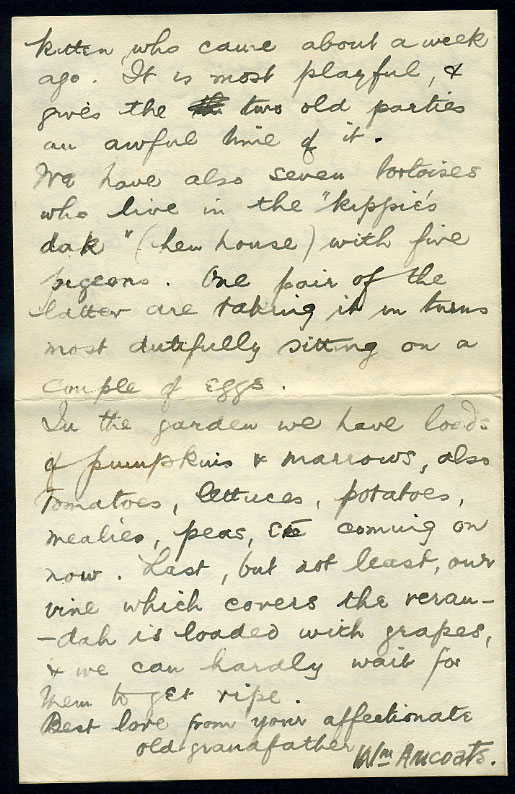 kitten who came about a week
ago. It is most playful, &
gives the two old parties
an awful time of it.
We have also seven tortoises
who live in the "kippie's
dak" (hen house) with five
pigeons. One pair of the
latter are taking it in turns
most dutifully sitting on a
couple of eggs.
In the garden we have loads
of pumpkins & marrows, also
tomatoes, lettuces, potatoes,
mealies, peas, etc coming on
now. Last, but not least, our
vine which covers the veran-
-dah is loaded with grapes,
& we can hardly wait for
them to get ripe.
Best love from your affectionate
old grandfather
Wm Ancoats.